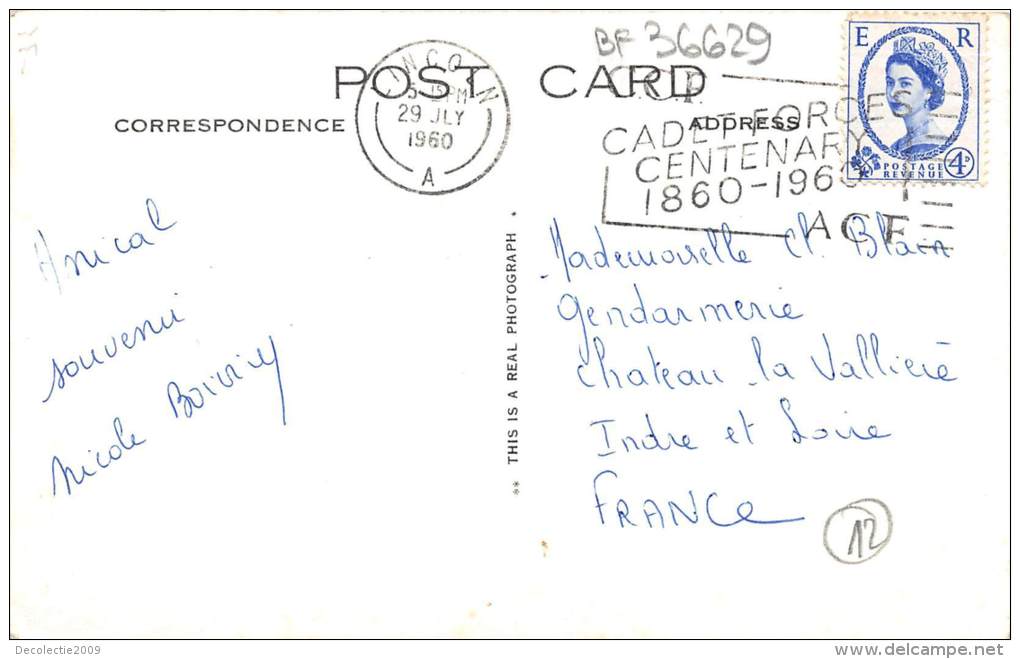 BF 36629
POST CARD
CORRESPONDENCE
ADDRESS
29 JLY
1960
A
CADET FORCES
CENTENARY
1860-1960
ACF
E R
POSTAGE
REVENUE
4D
Amical
souvenir
Nicole
** THIS IS A REAL PHOTOGRAPH .
Mademoiselle Ch. Blain
Gendarmerie
Chateau-la Vallière
Indre et Loire
FRANCe
12
Decolectie2009
www.delcampe.net